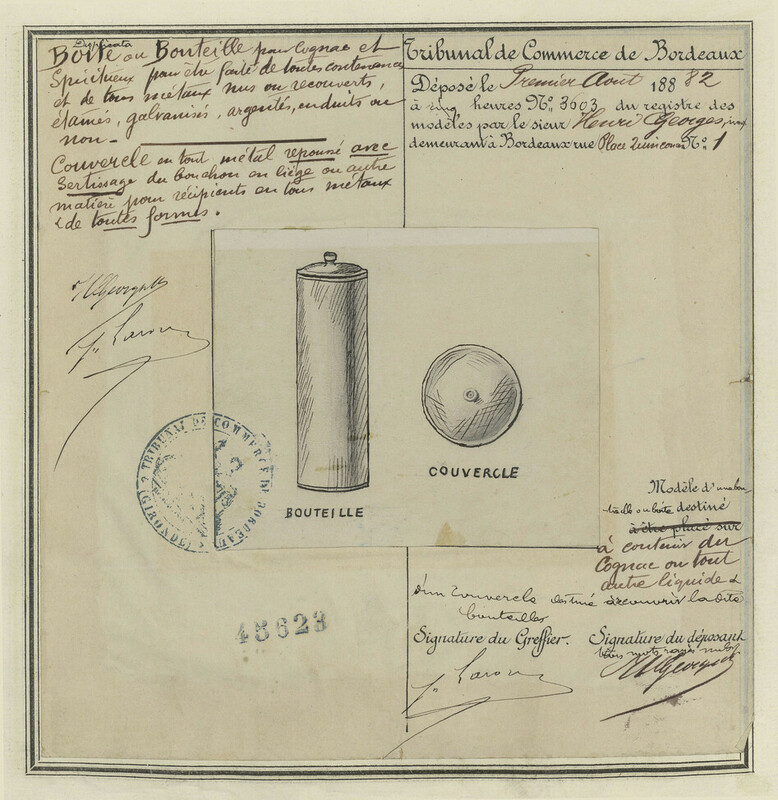 Duplicata
Boîte ou Bouteille pour Cognac et
Spiritueux pour être faite de toutes contenances
et de tous métaux nus ou recouverts,
étamés, galvanisés, argentés, enduits ou
non -
Couvercle en tout métal repoussé avec
Sertissage du bouchon en liège ou autre
matière pour récipients en tous métaux
& de toutes formes.
Tribunal de Commerce de Bordeaux
Déposé le Premier Août 188 82
à cinq heures No. 3603 du registre des
modèles par le sieur Henri Georges
demeurant à Bordeaux rue Place Quinconces No. 1
HGeorges
Larou
TRIBUNAL DE COMMERCE DE BORDEAUX
(GIRONDE)
BOUTEILLE
COUVERCLE
Modèle d'une bou-
teille ou boîte destiné
à être placé sur
à contenir du
Cognac ou tout
autre liquide &
d'un couvercle destiné à couvrir la dite
bouteille
45623
Signature du Greffier.
Signature du déposant
trois mots rayés nuls
Larou
HGeorges